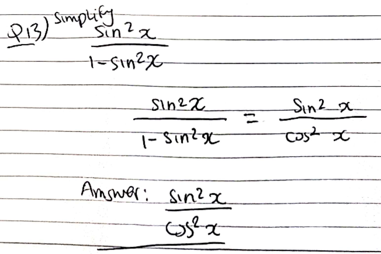 Q13) Simplify
sin²x / 1-sin²x
sin2x / 1-sin²x = sin² x / cos² x
Answer: sin²x / cos²x